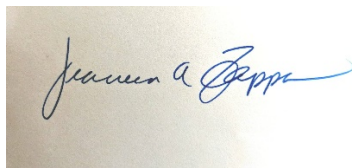 Jeaneen A Zappa